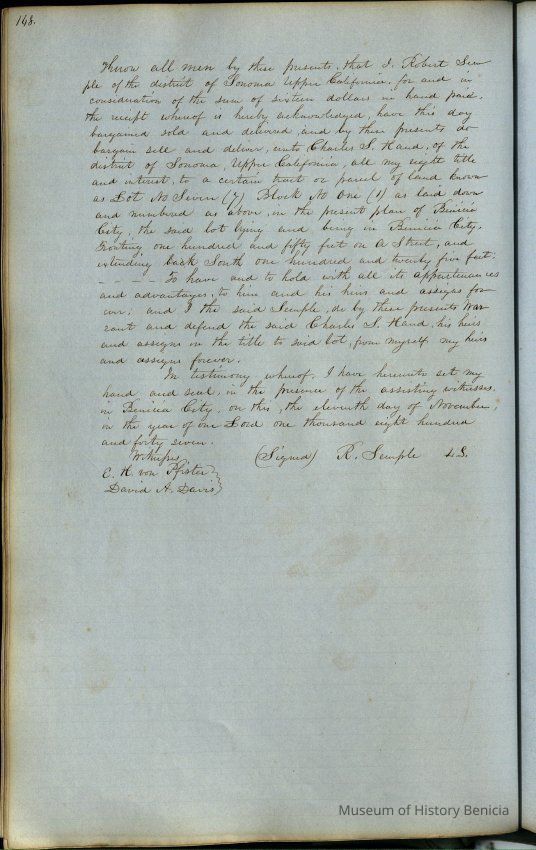 148.
Know all men by these presents, that I. Robert Sem
ple of the district of Sonoma Upper California, for and in
consideration of the sum of sixteen dollars in hand paid,
the receipt whereof is hereby acknowledged, have this day
bargained sold and delivered, and by these presents do
bargain sell and deliver, unto Charles S. Hand, of the
district of Sonoma, Upper California, all my right title
and interest, to a certain tract or parcel of land known
as Lot No Seven (7) Block No One (1) as laid down
and numbered as above, in the present plan of Benicia
City, the said lot lying and being in Benicia City,
fronting one hundred and fifty feet on A Street, and
extending back South one hundred and twenty five feet:
- - - - - To have and to hold with all its appurtenances
and advantages, to him and his heirs and assigns for
ever; and I the said Semple, do by these presents War
rant and defend the said Charles S. Hand, his heirs
and assigns in the title to said lot, from myself my heirs
and assigns forever.
In testimony whereof, I have hereunto set my
hand and seal, in the presence of the assisting witnesses
in Benicia City, on this, the eleventh day of November,
in the year of our Lord one thousand eight hundred
and forty seven.
Witness (Signed) R. Semple L.S.
C. H. von Pfister
David A. Davis
Museum of History Benicia